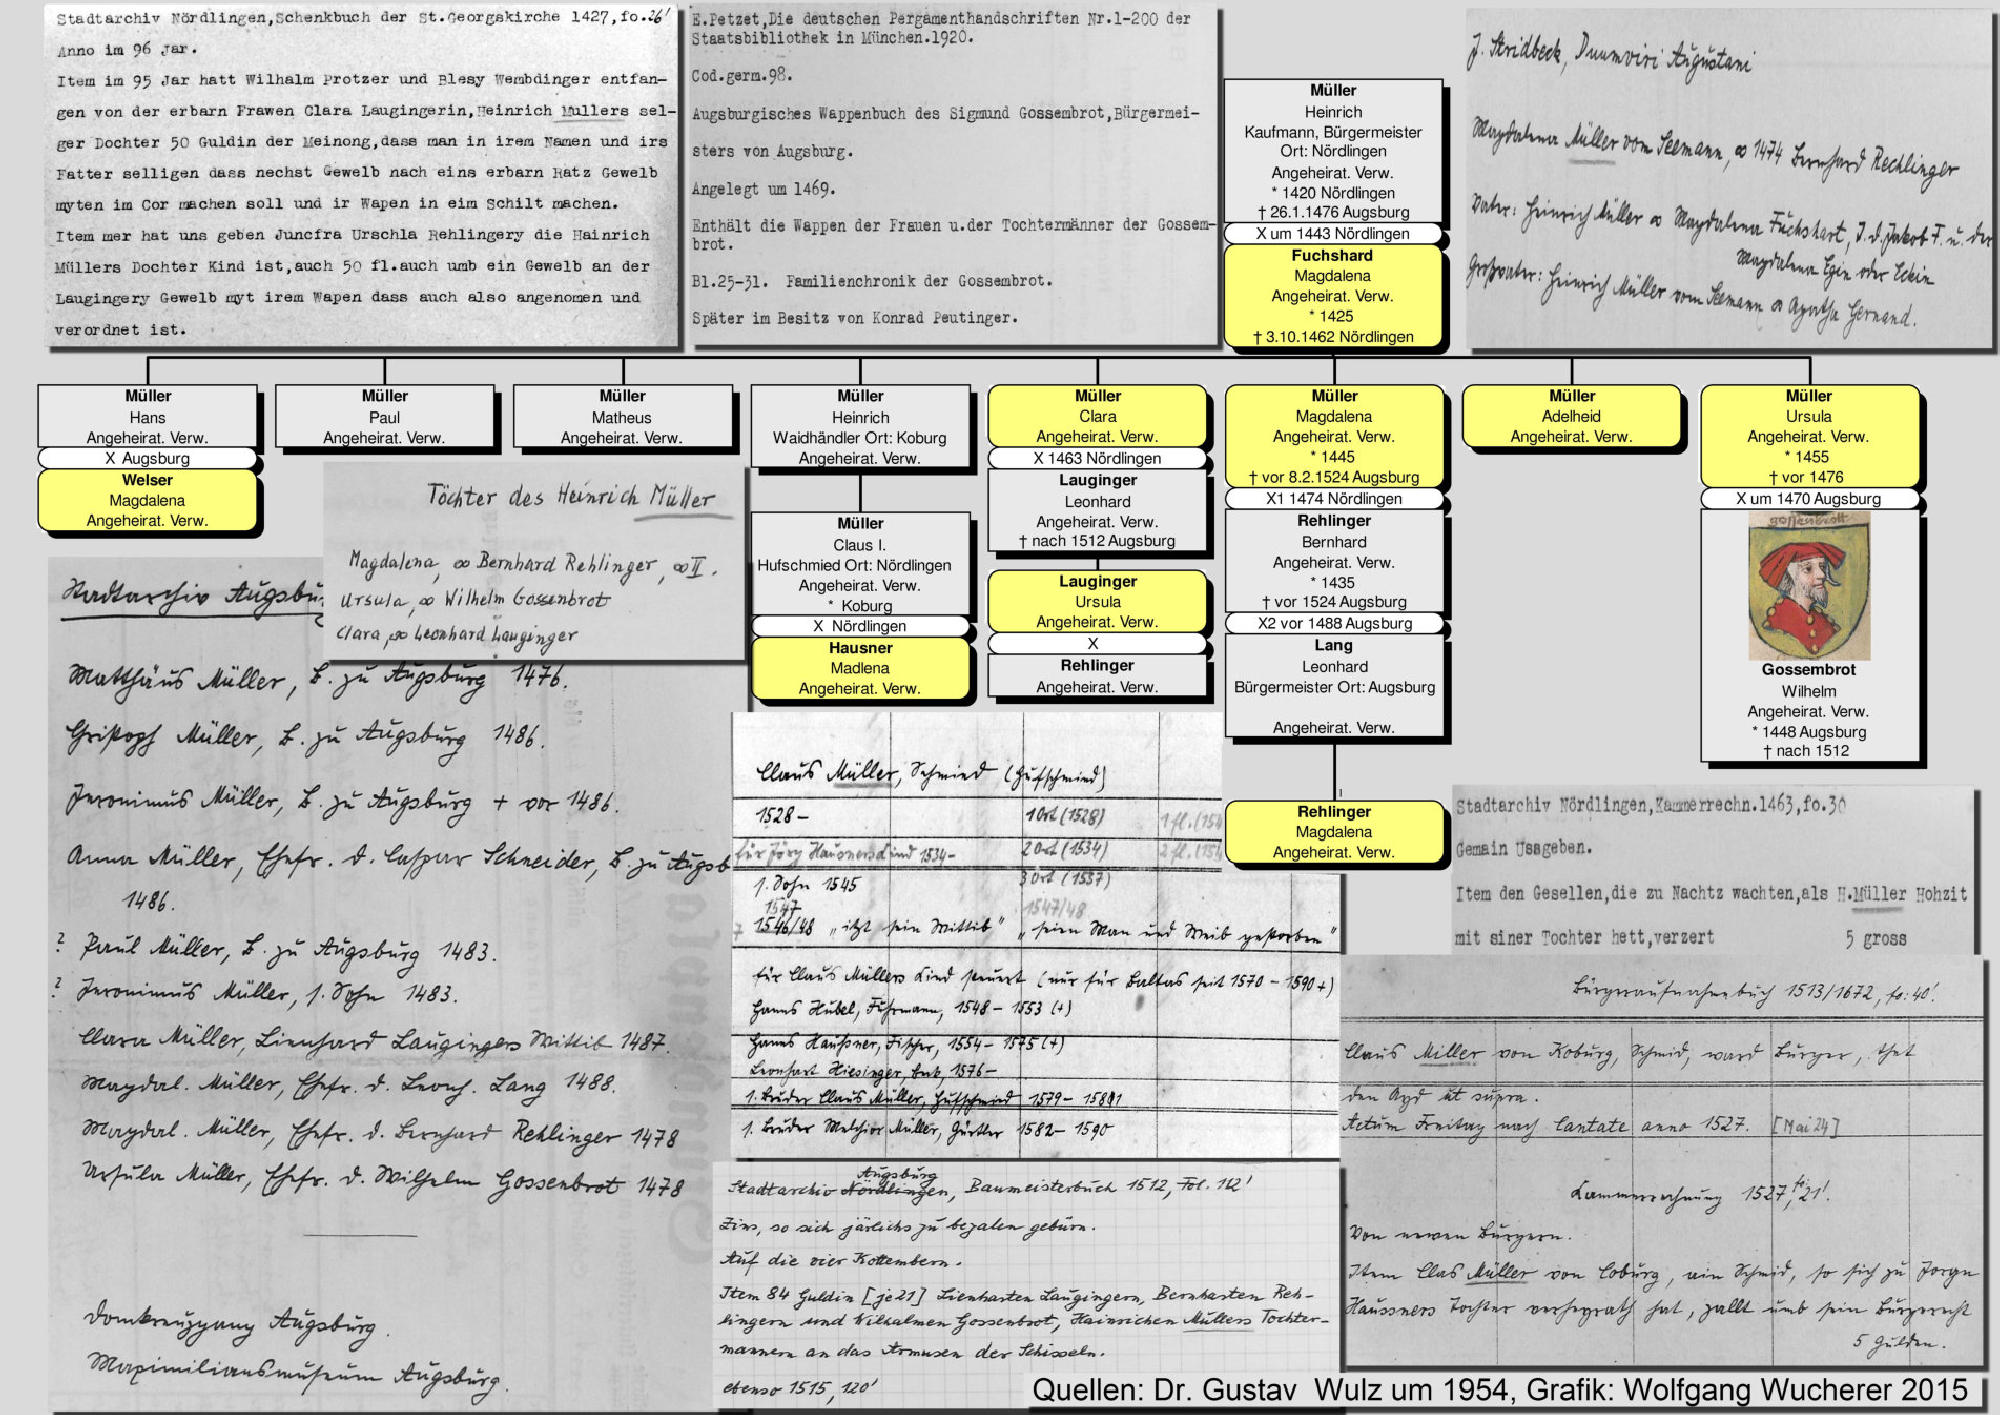 Stadtarchiv Nördlingen,Schenkbuch der St.Georgskirche 1427,fo.26'
Anno im 96 Jar.
Item im 95 Jar hatt Wilhalm Protzer und Blesy Wembdinger entfan-
gen von der erbarn Frawen Clara Laugingerin,Heinrich Mullers sel-
ger Dochter 50 Guldin der Meinong,dass man in irem Namen und irs
Fatter selligen dass nechst Gewelb nach eins erbarn Ratz Gewelb
myten im Cor machen soll und ir Wapen in eim Schilt machen.
Item mer hat uns geben Juncfra Urschla Rehlingery die Hainrich
Müllers Dochter Kind ist,auch 50 fl.auch umb ein Gewelb an der
Laugingery Gewelb myt irem Wapen dass auch also angenomen und
verordnet ist.
E.Petzet,Die deutschen Pergamenthandschriften Nr.1-200 der
Staatsbibliothek in München.1920.
Cod.germ.98.
Augsburgisches Wappenbuch des Sigmund Gossembrot,Bürgermei-
sters von Augsburg.
Angelegt um 1469.
Enthält die Wappen der Frauen u.der Tochtermänner der Gossem-
brot.
Bl.25-31. Familienchronik der Gossembrot.
Später im Besitz von Konrad Peutinger.
Müller
Heinrich
Kaufmann, Bürgermeister
Ort: Nördlingen
Angeheirat. Verw.
* 1420 Nördlingen
† 26.1.1476 Augsburg
X um 1443 Nördlingen
Fuchshard
Magdalena
Angeheirat. Verw.
* 1425
† 3.10.1462 Nördlingen
J. Stridbeck, Duumviri Augustani
Magdalena Müller vom Seemann, ∞ 1474 Bernhard Rechlinger
Vater: Heinrich Müller ∞ Magdalena Fuchshart, T. d. Jakob F. u. der
Magdalena Egin oder Eckin
Großvater: Heinrich Müller vom Seemann ∞ Agatha Gernand.
Müller
Hans
Angeheirat. Verw.
X Augsburg
Welser
Magdalena
Angeheirat. Verw.
Müller
Paul
Angeheirat. Verw.
Müller
Matheus
Angeheirat. Verw.
Müller
Heinrich
Waidhändler Ort: Koburg
Angeheirat. Verw.
Müller
Claus I.
Hufschmied Ort: Nördlingen
Angeheirat. Verw.
* Koburg
X Nördlingen
Hausner
Madlena
Angeheirat. Verw.
Müller
Clara
Angeheirat. Verw.
X 1463 Nördlingen
Lauginger
Leonhard
Angeheirat. Verw.
† nach 1512 Augsburg
Lauginger
Ursula
Angeheirat. Verw.
X
Rehlinger
Angeheirat. Verw.
Müller
Magdalena
Angeheirat. Verw.
* 1445
† vor 8.2.1524 Augsburg
X1 1474 Nördlingen
Rehlinger
Bernhard
Angeheirat. Verw.
* 1435
† vor 1524 Augsburg
X2 vor 1488 Augsburg
Lang
Leonhard
Bürgermeister Ort: Augsburg
Angeheirat. Verw.
Rehlinger
Magdalena
Angeheirat. Verw.
Müller
Adelheid
Angeheirat. Verw.
Müller
Ursula
Angeheirat. Verw.
* 1455
† vor 1476
X um 1470 Augsburg
gossenbrott
Gossembrot
Wilhelm
Angeheirat. Verw.
* 1448 Augsburg
† nach 1512
Töchter des Heinrich Müller
Magdalena, ∞ Bernhard Rehlinger, ∞ II.
Ursula, ∞ Wilhelm Gossenbrot
Clara, ∞ Leonhard Lauginger
Stadtarchiv Augsbu
Matthäus Müller, B. zu Augsburg 1476.
Christoph Müller, B. zu Augsburg 1486.
Jeronimus Müller, B. zu Augsburg + vor 1486.
Anna Müller, Ehefr. d. Caspar Schneider, B. zu Augsb
1486.
? Paul Müller, B. zu Augsburg 1483.
? Jeronimus Müller, s. Sohn 1483.
Clara Müller, Lienhard Laugingers Wittib 1487.
Magdal. Müller, Ehefr. d. Leonh. Lang 1488.
Magdal. Müller, Ehefr. d. Bernhard Rehlinger 1478
Ursula Müller, Ehefr. d. Wilhelm Gossenbrot 1478
Domkreuzgang Augsburg.
Maximiliansmuseum Augsburg.
Claus Müller, Schmied (Hufschmied)
1528 – 1 Ort (1528) 1 fl. (154
für Jörg Hausners Kind 1534– 2 Ort (1534) 2 fl. (154
s. Sohn 1545 3 Ort (1537)
1547 1547/48
1546/48 „itzt sein Wittib" „seien Man und Weib gestorben"
für Claus Müllers Kind steuert (nur für Baltas seit 1570 – 1590 +)
Hanns Hubel, Fuhrmann, 1548 – 1553 (+)
Hanns Haußner, Fischer, 1554 – 1575 (+)
Leonhart Hiesinger, 1576 –
s. Bruder Claus Müller, Hufschmied 1579 – 1581
s. Bruder Melchior Müller, Gürtler 1582 – 1590
Augsburg
Stadtarchiv Nördlingen, Baumeisterbuch 1512, Fol. 112'
Zins, so sich järlichs zu bezalen geburn.
Auf die vier Kottembern.
Item 84 Guldin [je 21] Lienharten Laugingern, Bernharten Reh-
lingern und Wilhalmen Gossenbrot, Hainrichen Müllers Tochter-
mannern an das Armusen der Schisseln.
ebenso 1515, 120'
Stadtarchiv Nördlingen,Kammerrechn.1463,fo.30
Gemain Ussgeben.
Item den Gesellen,die zu Nachtz wachten,als H.Müller Hohzit
mit siner Tochter hett,verzert 5 gross
Bürgeraufnahmebuch 1513/1672, fo. 40'.
Claus Miller von Koburg, Schmid, ward Burger, that
den Ayd ut supra.
Actum Freitag nach Cantate anno 1527. [Mai 24]
Kammerrechnung 1527, fo. 21'.
Von newen Burgern.
Item Clas Müller von Coburg, ain Schmid, so sich zu Jorgn
Haussners Tochter verheyrath hat, zallt umb sein Burgerecht
5 Gulden.
Quellen: Dr. Gustav Wulz um 1954, Grafik: Wolfgang Wucherer 2015